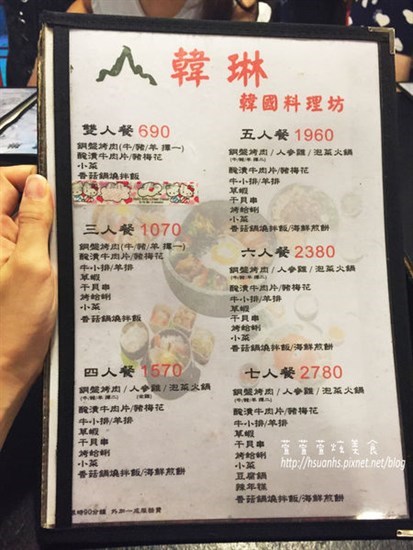 韓琳
韓國料理坊
雙人餐 690
銅盤烤肉(牛/豬/羊 擇一)
醃漬牛肉片/豬梅花
小菜
香菇鍋燒拌飯
三人餐 1070
銅盤烤肉(牛/豬/羊 擇一)
醃漬牛肉片/豬梅花
牛小排/羊排
草蝦
干貝串
烤蛤蜊
小菜
香菇鍋燒拌飯
四人餐 1570
銅盤烤肉/人參雞/泡菜火鍋
(牛/豬/羊 擇二)
醃漬牛肉片/豬梅花
牛小排/羊排
草蝦
干貝串
烤蛤蜊
小菜
香菇鍋燒拌飯/海鮮煎餅
限時90分鐘 外加一成服務費
五人餐 1960
銅盤烤肉/人參雞/泡菜火鍋
(牛/豬/羊 擇二)
醃漬牛肉片/豬梅花
牛小排/羊排
草蝦
干貝串
烤蛤蜊
小菜
香菇鍋燒拌飯/海鮮煎餅
六人餐 2380
銅盤烤肉/人參雞/泡菜火鍋
(牛/豬/羊 擇二)
醃漬牛肉片/豬梅花
牛小排/羊排
草蝦
干貝串
烤蛤蜊
小菜
香菇鍋燒拌飯/海鮮煎餅
七人餐 2780
銅盤烤肉/人參雞/泡菜火鍋
(牛/豬/羊 擇二)
醃漬牛肉片/豬梅花
牛小排/羊排
草蝦
干貝串
烤蛤蜊
小菜
豆腐鍋
辣年糕
香菇鍋燒拌飯/海鮮煎餅
萱萱萱炫美食
http://hsuanhs.pixnet.net/blog